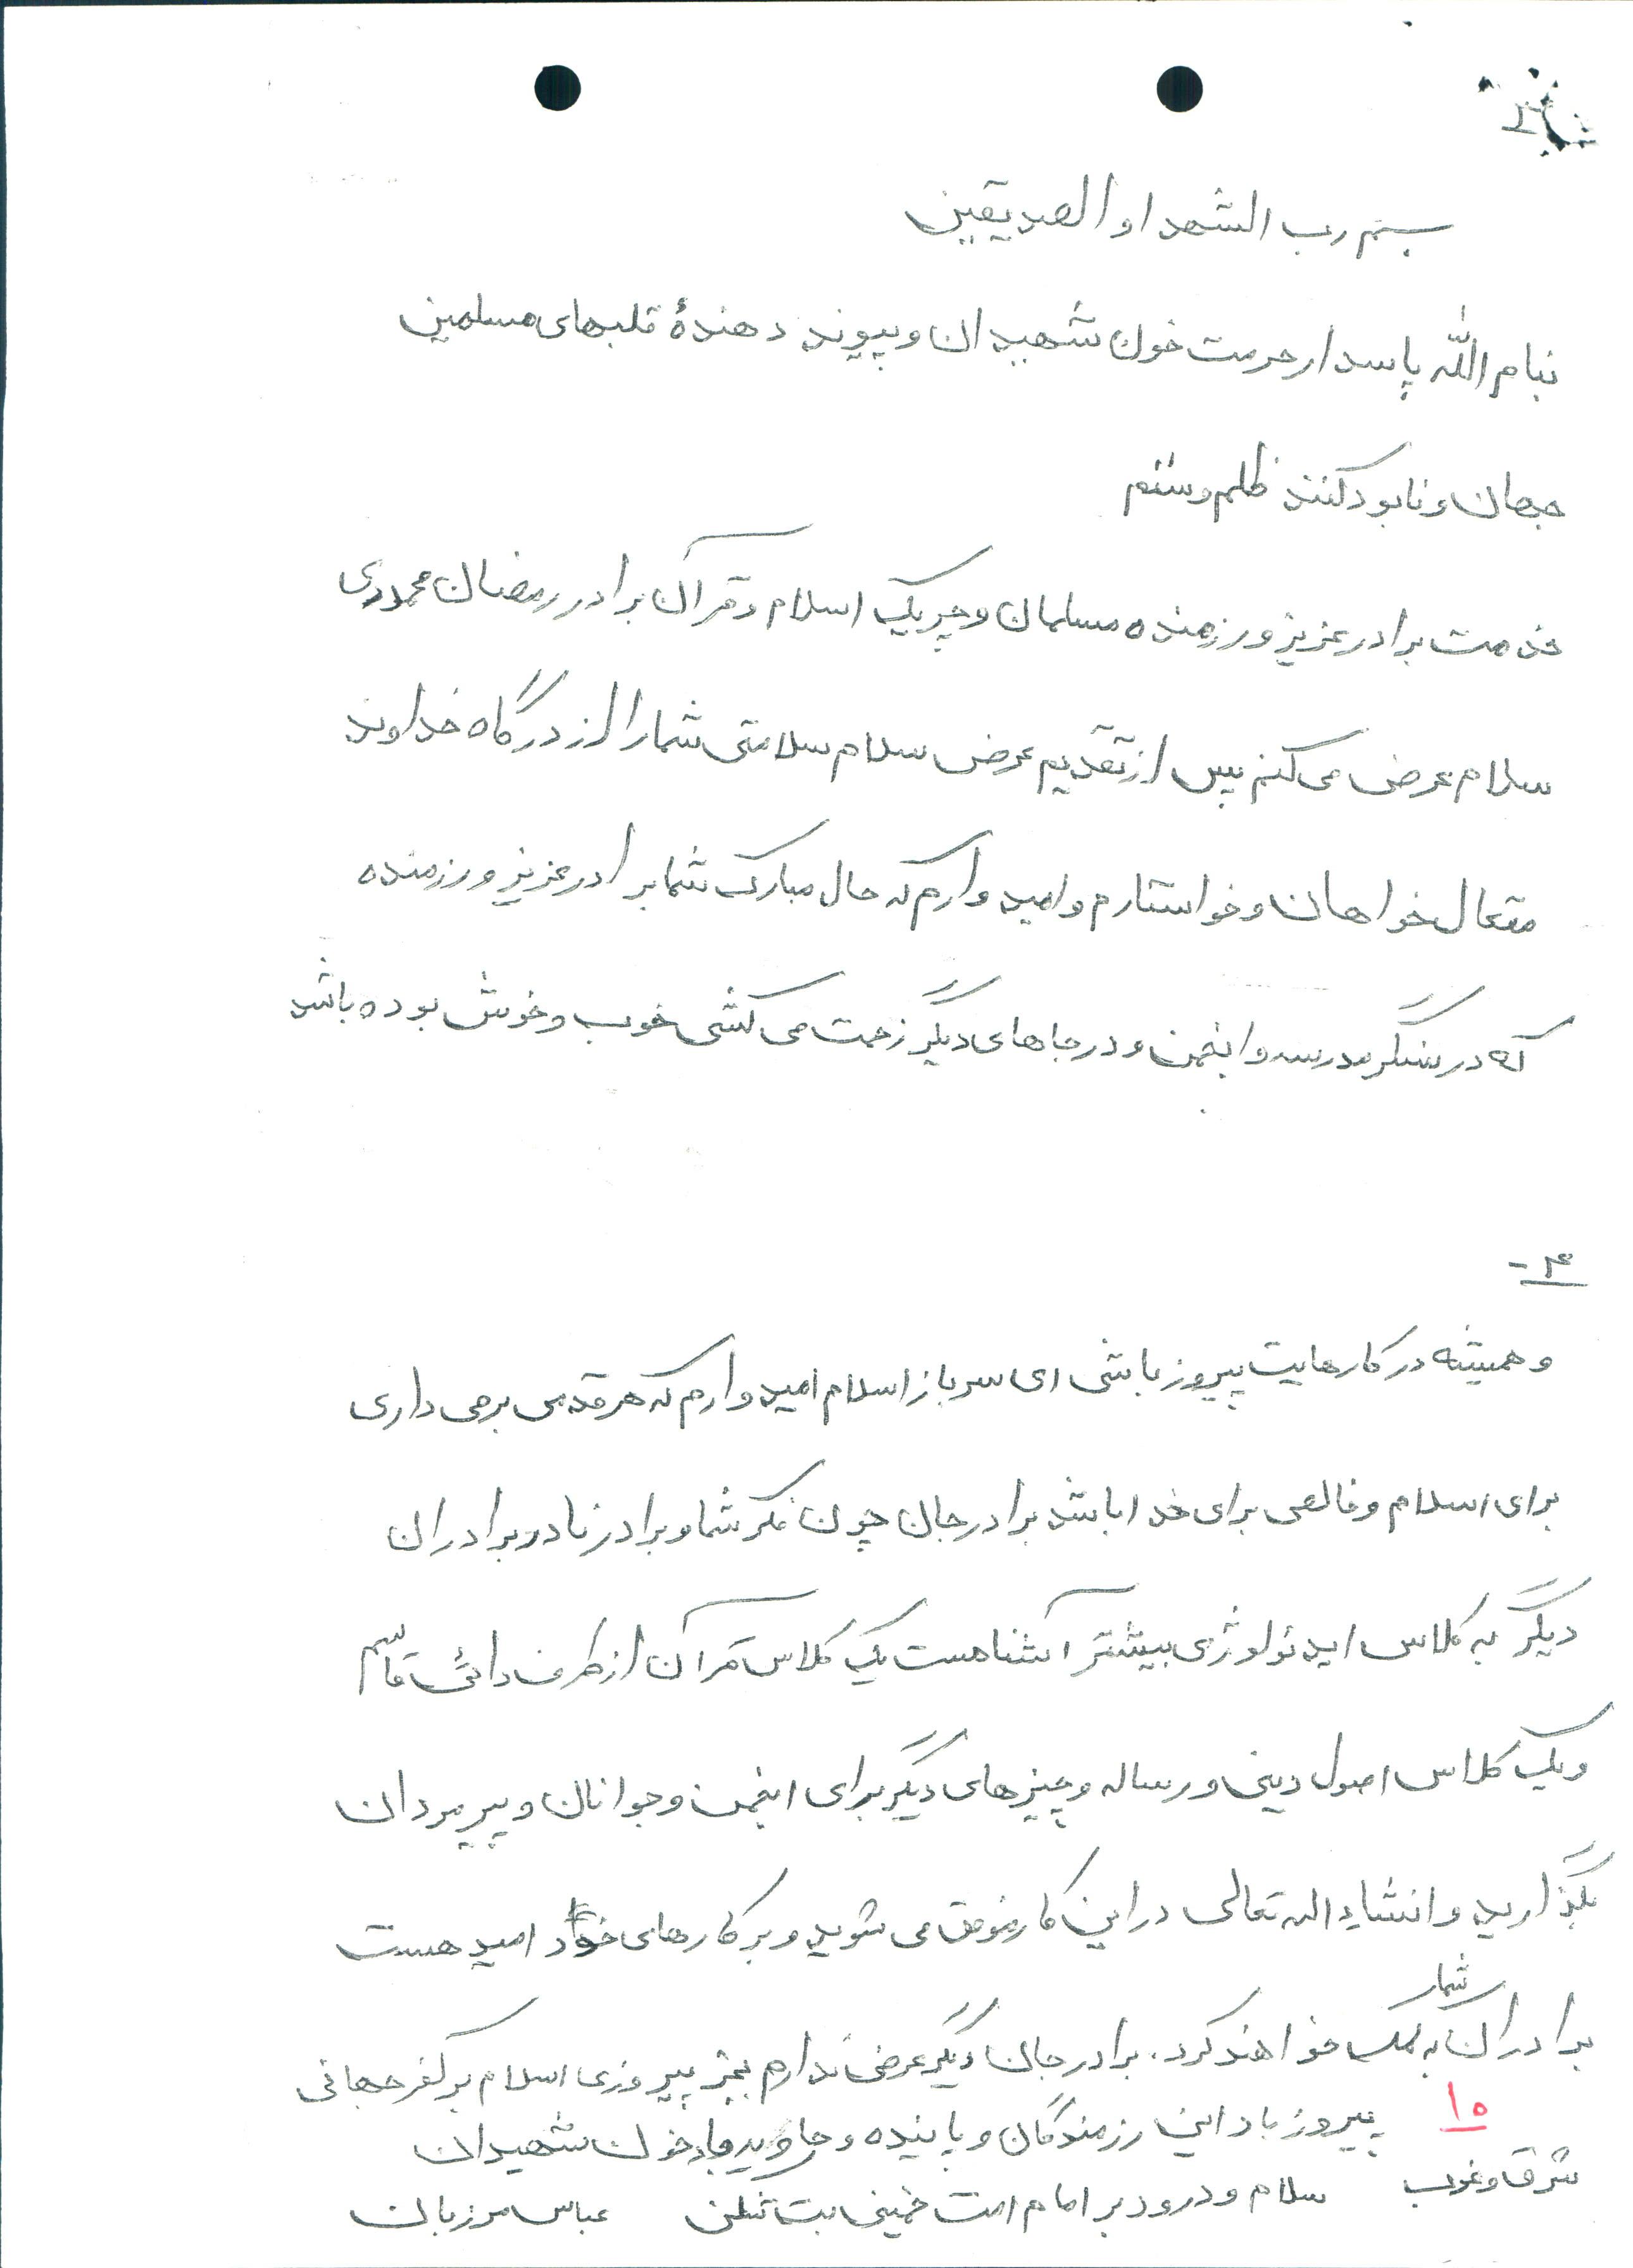 بسم رب الشهدا و الصدیقین
بنام الله پاسدار حرمت خون شهیدان و پیوند دهندهٔ قلبهای مسلمین
جهان و نابود کنند ظلم و ستم
خدمت برادر عزیز و رزمنده مسلمان و چریک اسلام و قرآن برادر رمضان محمودی
سلام عرض می کنم پس از تقدیم عرض سلام سلامتی شما را از درگاه خداوند
متعال خواهان و خواستارم و امید وارم که حال مبارک شما برادر عزیز و رزمنده
که در سنگر مدرسه و انجمن و در جاهای دیگر زحمت می کشی خوب و خوش بوده باشد
۴ -
و همیشه در کارهایت پیروز باشی ای سرباز اسلام امید وارم که هر قدمی برمی داری
برای اسلام و خالصی برای خدا باشد برادر جان چون فکر شما و برادر نادر و برادران
دیگر به کلاس ایدئولوژی بیشتر آشنا هست یک کلاس قرآن از طرف دائی قاسم
و یک کلاس اصول دینی و رساله و چیزهای دیگر برای انجمن و جوانان و پیر مردان
بگذارید و انشاء اله تعالی در این کار موفق می شوید و بر کارهای خود امید هست
شما
برادران به کمک خواهند کرد. برادر جان دیگر عرضی ندارم بجز پیروزی اسلام بر کفر جهانی
۱۵ پیروز باد این رزمندگان و پاینده و جاوید باد خون شهیدان
شرق و غرب سلام و درود بر امام امت خمینی بت شکن عباس مرزبان